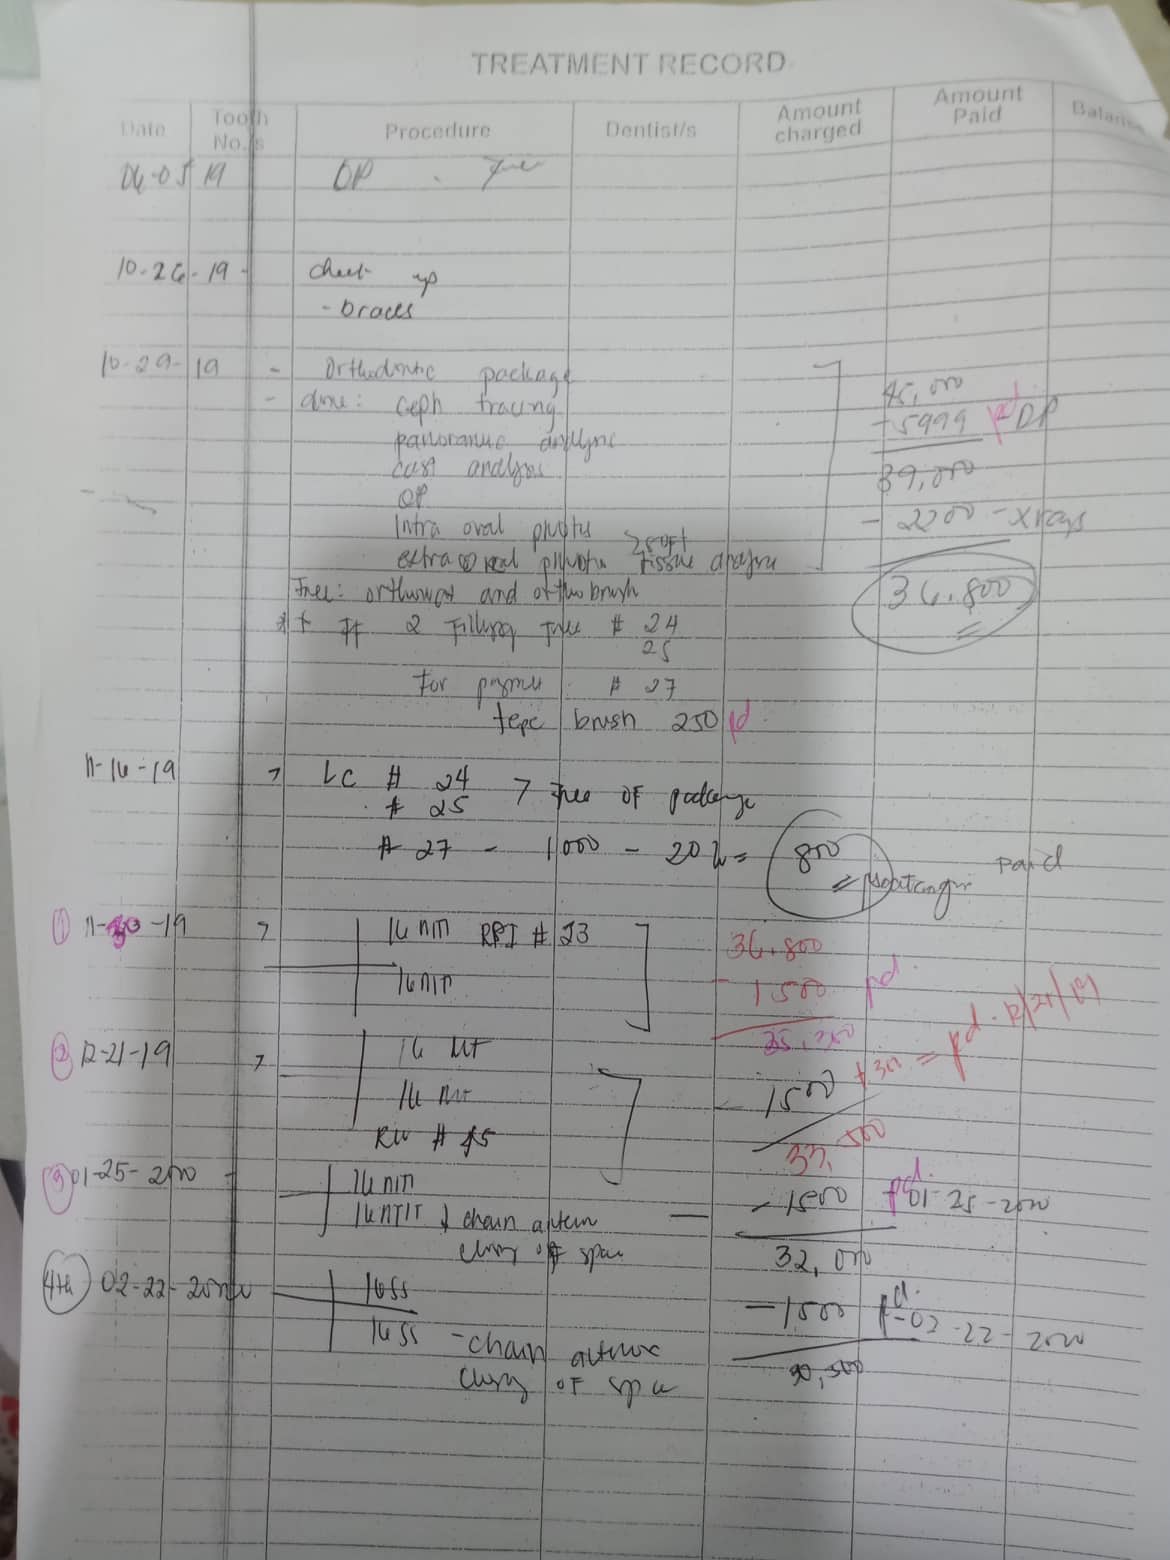 TREATMENT RECORD
Date Tooth No./s Procedure Dentist/s Amount charged Amount Paid Balance
06-05 19 OP
10-26-19 - check up
- braces
10-29-19 - Orthodontic package 45,000
- done: ceph tracing - 5999 pd DP
panoramic analysis
cast analysis 39,000
OP
Intra oral photo - 2200 - xrays
extra oral photo soft tissue analysis
36,800
Free: orthowax and ortho brush
** 2 Filling free # 24
25
For payment # 27
tepe brush 250 pd
11-16-19 > LC # 24 > Free OF package
# 25
# 27 - 1000 - 20% = 800 paid
① 11-30-19 > 16 niti RPI # 23 36,800
16 niti - 1500 pd
35,300
② 12-21-19 > 16 NT - 1500 + 300 = pd. 12/21/19
16 NT
RW # 45 33,500
③ 01-25-2020 - 16 niti - 1500 pd. 01-25-2020
16 NITI chain
closing of space 32,000
4th 02-22-2020 16 ss - 1500 pd. 02-22-2020
16 SS - chain
closing OF space 30,500